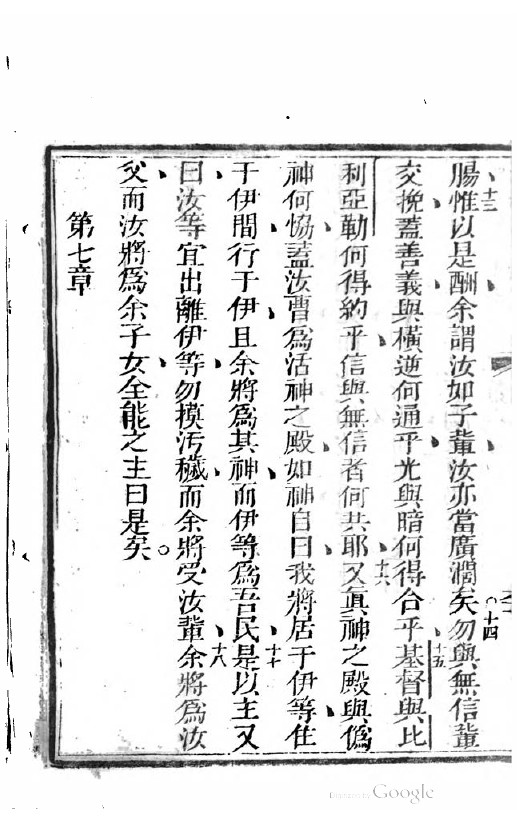 腸惟以是酬余謂汝如子輩汝亦當廣濶矣勿與無信輩
十三
十四
交挽蓋善義與橫逆何通乎光與暗何得合乎基督與比
十五
利亞勒何得約乎信與無信者何共耶又眞神之殿與僞
十六
神何恊蓋汝曹爲活神之殿如神自曰我將居于伊等住
于伊間行于伊且余將爲其神而伊等爲吾民是以主又
十七
曰汝等宜出離伊等勿摸汚穢而余將受汝輩余將爲汝
十八
父而汝將爲余子女全能之主曰是矣
第七章
Google